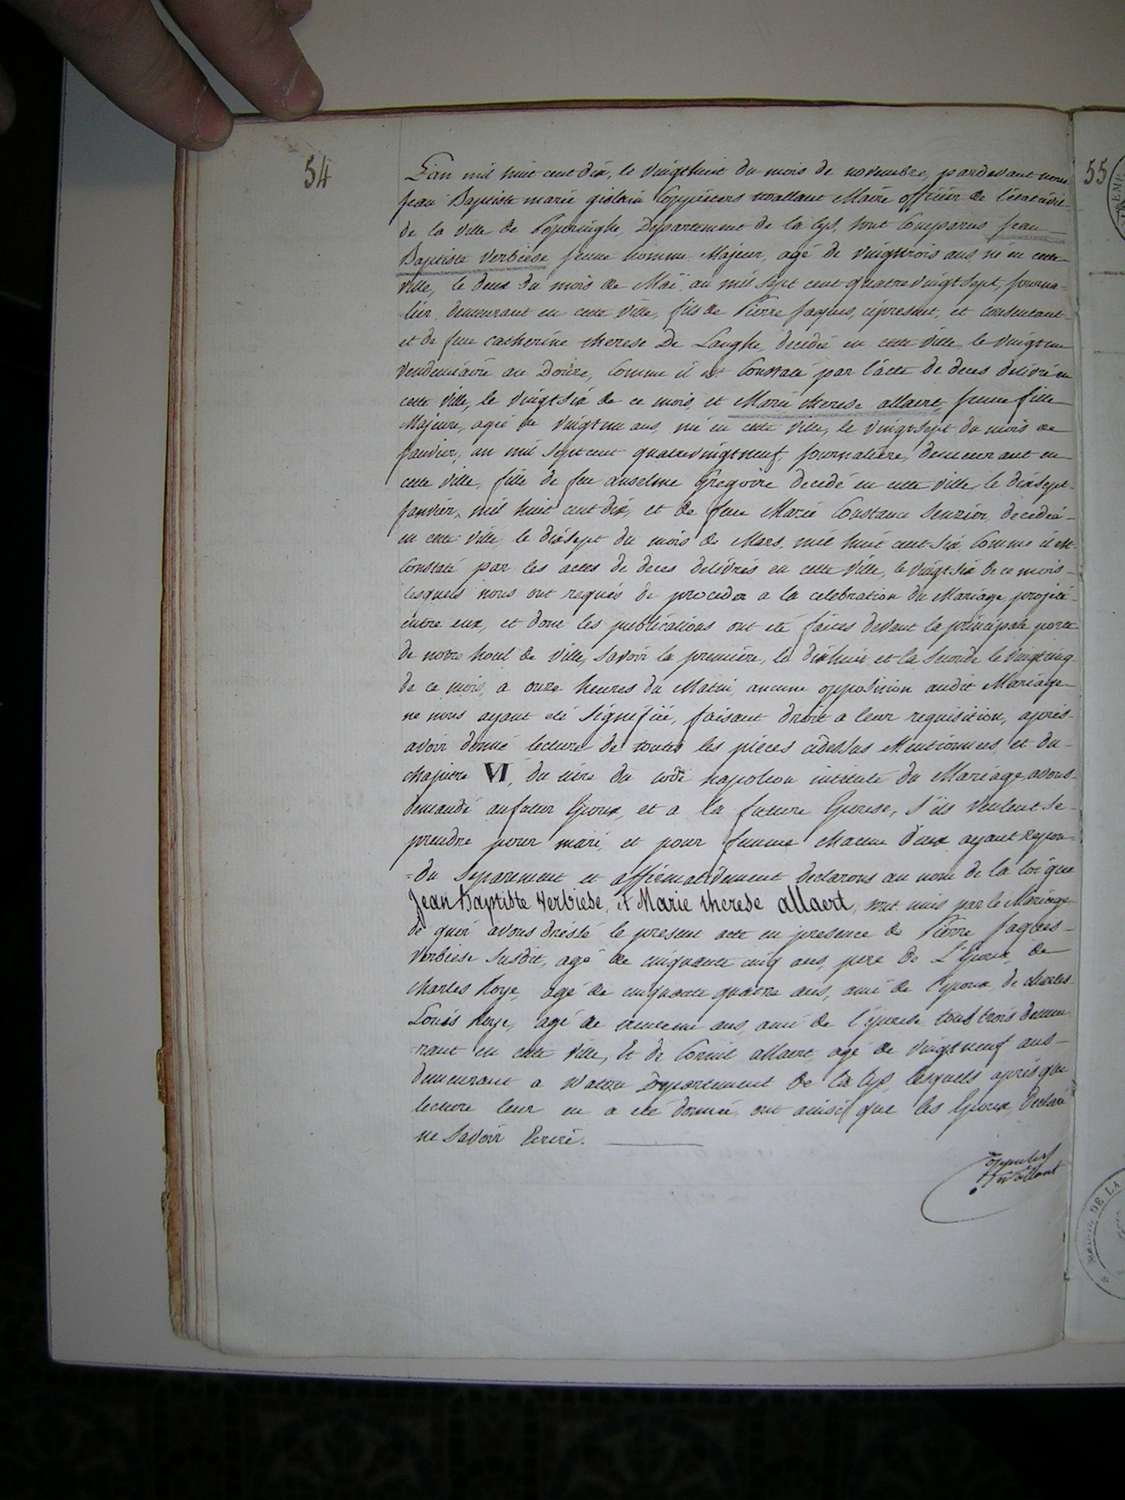 54
L'an mil huit cent dix, le vingthuit du mois de novembre, pardevant nous
Jean Baptiste marie gislain Coppieters wallant Maire officier de l'état civil
de la ville de Poperinghe, Departement de la Lys, sont Comparus Jean
Baptiste Verbiese jeune homme Majeur, agé de vingttrois ans né en cette
ville, le deux du mois de Mai, an mil sept cent quatrevingtsept, journa-
lier, demeurant en cette ville, fils de Pierre Jaques, cipresent, et consentant
et de feue Catherine therese De Langhe, decedée en cette ville le vingtun
Vendemiaire an Douze, Comme il est Constaté par l'acte de deces delivré en
cette ville, le vingtsix de ce mois, et Marie therese allaert, jeune fille
Majeure, agée de vingtun ans, née en cette ville, le vingtsept du mois de
Janvier, an mil septcent quatrevingtneuf, journaliere, demeurant en
cette ville, fille de feu anselme Gregoire decedé en cette ville, le dixsept
Janvier, mil huit cent dix, et de feue Marie Constance decedée
en cette ville, le dixsept du mois de Mars, mil huit cent six, Comme il est
Constaté par les actes de deces delivrés en cette ville, le vingtsix de ce mois
lesquels nous ont requis de proceder a la celebration du Mariage projeté
entre eux, et dont les publications ont été faites devant la principale porte
de notre hotel de ville, savoir la premiere, le dixhuit et la seconde le vingtcinq
de ce mois, a onze heures du Matin, aucune opposition audit Mariage
ne nous ayant été signifiée, faisant droit a leur requisition, après
avoir donné lecture de toutes les pieces cidessus Mentionnées, et du
chapitre VI, du titre du code napoleon intitulé du Mariage, avons
demandé au futur Epoux, et a la future Epouse, s'ils veulent se
prendre pour mari, et pour femme chacun d'eux ayant repon-
-du separement et affirmativement declarons au nom de la loi que
Jean Baptiste Verbiese, et Marie therese allaert, sont unis par le Mariage
de quoi avons dressé le present acte en presence de Pierre Jaques
Verbiese susdit, agé de cinquante cinq ans, pere de L'Epoux, de
Charles Roye, agé de cinquante quatre ans, ami de l'epoux, de charles
Louis Roye, agé de ans, ami de l'épouse tous trois demeu
rant en cette ville, Et de Corneil allaert, agé de vingtneuf ans
demeurant a Watou Departement de la Lys lesquels après que
lecture leur en a été donnée ont ainsi que les Epoux, Declaré
ne savoir Ecrire.
Coppieters
Wallant
55
MAIRIE DE LA